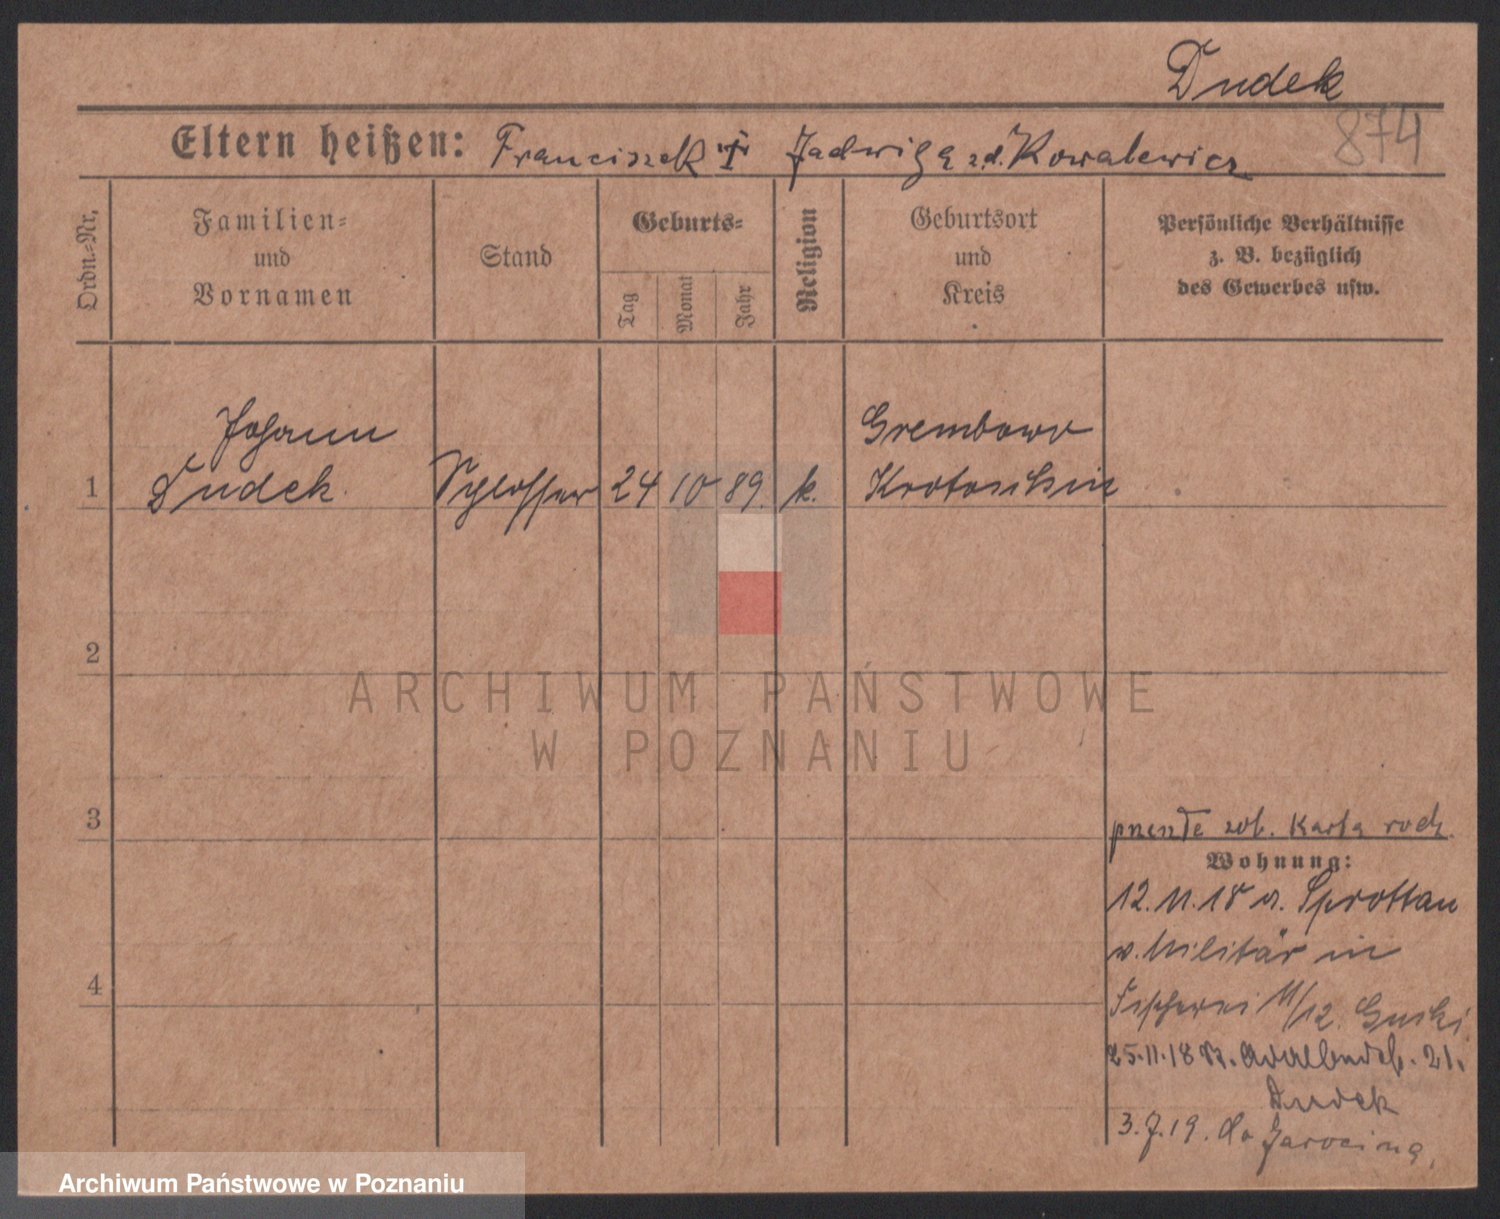 Dudek
874
Eltern heißen: Franciszek † Jadwiga z d. Kowalewicz
Ordn.-Nr.
Familien-
und
Vornamen
Stand
Geburts-
Tag
Monat
Jahr
Religion
Geburtsort
und
Kreis
Persönliche Verhältnisse
z. B. bezüglich
des Gewerbes usw.
Johann
Grembowo
1 Dudek Schlosser 24 10 89. k. Krotoschin
2
ARCHIWUM PAŃSTWOWE
W POZNANIU
3
zob. Karta rodz.
Wohnung:
12.11.18 v. Sprottau
v. Militär in
4
Fischerei 11/12.
25.11.18 21.
Dudek
3.7.19. do Jarocina.
Archiwum Państwowe w Poznaniu